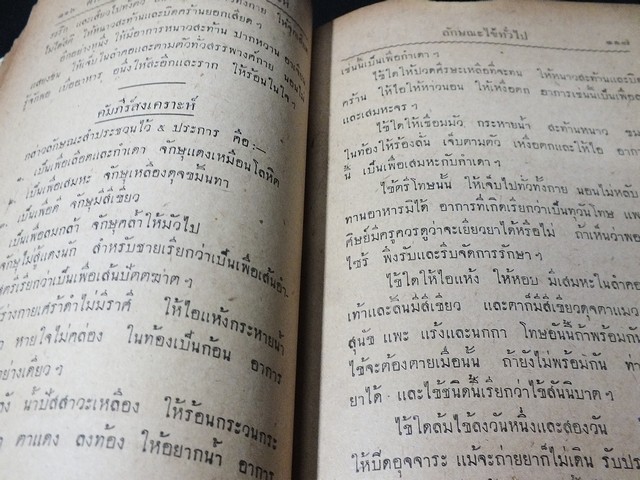 คัมภีร์สงเคราะห์
กล่าวลักษณะสำประชวนไว้ ๕ ประการ คือ:—
เป็นเพื่อเลือดและกำเดา จักษุแดงเหมือนโลหิต
เป็นเพื่อเสมหะ จักษุเหลืองดุจขมันทา
เป็นเพื่อดี จักษุมีสีเขียว
เป็นเพื่อลมกล้า จักษุคล้ำให้มัวไป
จักษุไม่สู้แดงนัก สำหรับชายเรียกว่าเป็นเพื่อเส้นอำ
สตรีเรียกว่าเป็นเพื่อเส้นปัตตฆาต ๆ
ร่างกายเศร้าดำไม่มีราศี ให้ไอแห้งกระหายน้ำ
หายใจไม่คล่อง ในท้องเป็นก้อน อาการ
อย่างเดียว ๆ
น้ำปัสสาวะเหลือง ให้ร้อนกระวนกระ
ตาแดง ลงท้อง ให้อยากน้ำ อาการ
ลักษณะไข้ทั่วไป ๑๑๗
เช่นนี้เป็นเพื่อกำเดา ๆ
ไข้ใดให้ปวดศีรษะเหลือที่จะทน ให้หนาวสะท้านและบิด
คร้าน ให้ไอให้หาวนอน ให้เหงื่อตก อาการเช่นนี้เป็นเพื่อล
และเสมหะจร ๆ
ไข้ใดให้เชื่อมมัว กระหายน้ำ สะท้านหนาว
ในท้องให้ร้องลั่น เจ็บตามตัว เหงื่อตกและให้ไอ อาการ
นี้ เป็นเพื่อเสมหะกับกำเดา ๆ
ไข้ตรีโทษนั้น ให้เจ็บไปทั่วทั้งกาย นอนไม่หลับ
ทานอาหารมิได้ อาการที่เกิดเรียกว่าเป็นทุวันโทษ แพ
ศิษย์มีครูควรดูว่าจะเยียวยาได้หรือไม่ ถ้าเห็นว่าพอ
ไซร้ พึงรับและรีบจัดการรักษา ๆ
ไข้ใดให้ไอแห้ง ให้หอบ มีเสมหะในลำคอ
เท้าและลิ้นมีสีเขียว และตาก็มีสีเขียวดุจตาแมว
สุนัข แพะ แร้งและนกกา โทษอันนี้ถ้าพร้อมกัน
ไข้จะต้องตายเมื่อนั้น ถ้ายังไม่พร้อมกัน ท่า
ยาได้ และไข้ชนิดนี้เรียกว่าไข้สันนิบาต ๆ
ไข้ใดล้มไข้ลงวันหนึ่งและสองวัน
ให้บิดอุจจาระ แม้จะถ่ายยาก็ไม่เดิน รับประ